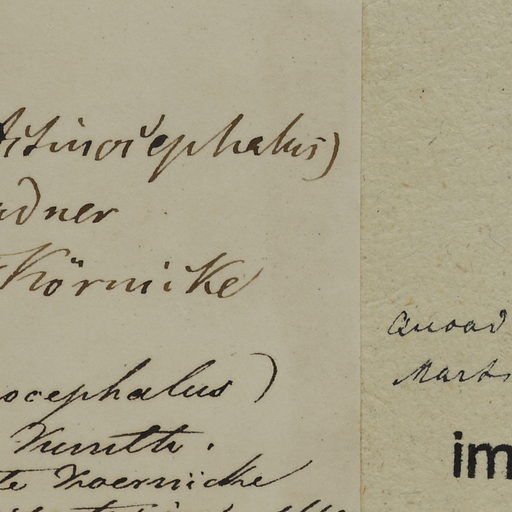 Actinocephalus)
dner
Körnicke
ocephalus)
Kunth.
te Koernicke
Quoad
Mart
im